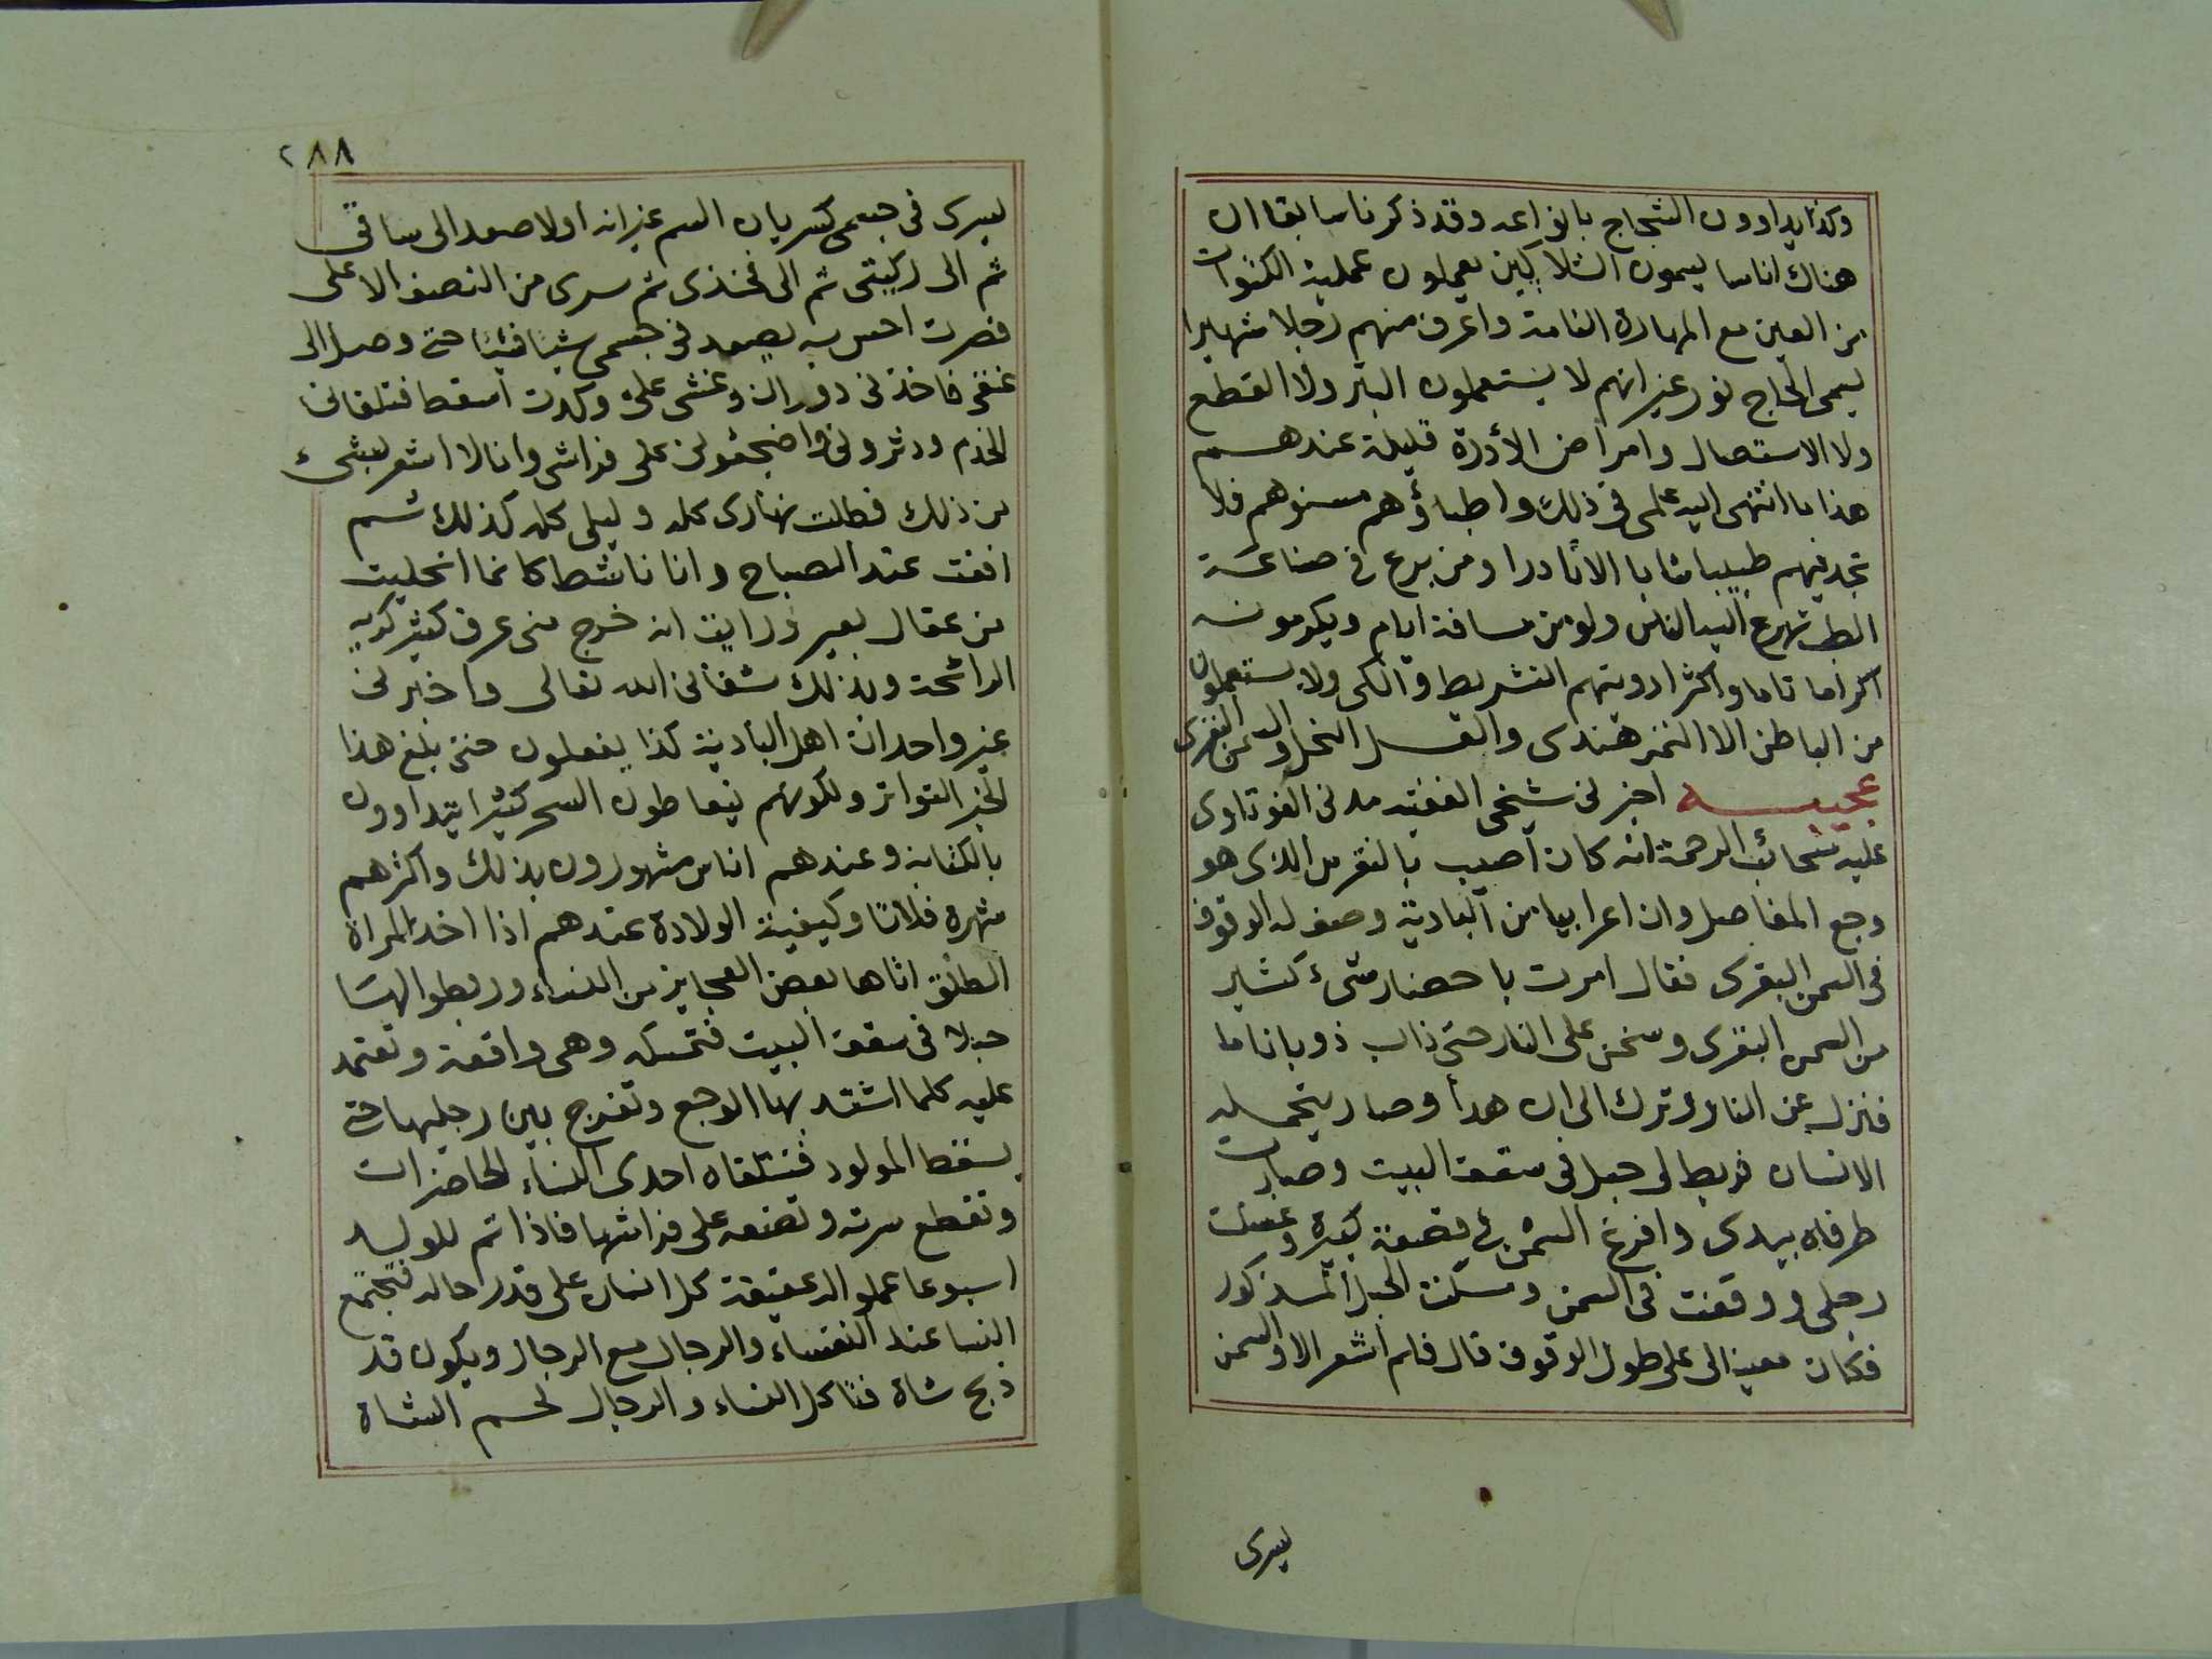 وكذا يداوون الشجاج بانواعه وقد ذكرنا سابقا ان
هناك اناسا يسمون الشلاكين يعملون عملية الكتوات
من العين مع المهارة التامة واعرف منهم رجلا شهيرا
يسمى الحاج نور غير انهم لا يستعملون البتر ولا القطع
ولا الاستصال وامراض الأدرة قليلة عندهم
هذا ما انتهى اليه علمى فى ذلك واطباؤهم مسنوهم فلا
تجد فيهم طبيبا شابا الا نادرا ومن برع فى صناعة
الطب تهرع اليه الناس ولو من مسافة ايام ويكرمونه
اكراما تاما واكثر ادويتهم التشريط والكى ولا يستعملون
من الباطن الا التمر هندى والعسل النحل والسمن البقرى
عجيبه اخبرنى شيخى الفقيه مدنى الفوتاوى
عليه سحائب الرحمة انه كان اصيب بالنقرس الذى هو
وجع المفاصل وان اعرابيا من البادية وصف له الوقوف
فى السمن البقرى فقال امرت باحضار شىء كثير
من السمن البقرى وسخن على النار حتى ذاب ذوبانا ما
فنزل عن النار وترك الى ان هدأ وصار يتحمله
الانسان فربط لى حبل فى سقف البيت وصارت
طرفاه بيدى وافرغ السمن فى قصعة كبيرة وغسلت
رجلى ووقفت فى السمن ومسكت الحبل المذكور
فكان معينا لى على طول الوقوف قال فلم اشعر الا والسمن
يسرى
٢٨٨
يسرى فى جسمى كسريان السم غير انه اولا صعد الى ساقى
ثم الى ركبتى ثم الى فخذى ثم سرى من النصف الاعلى
فصرت احس به يصعد فى جسمى شيئا فشيئا حتى وصل الى
عنقى فاخذنى دوران وغشى على وكدت اسقط فتلقانى
الخدم ودثرونى واضجعونى على فراشى وانا لا اشعر بشىء
من ذلك فظلت نهارى كله وليلى كله كذلك ثم
افقت عند الصباح وانا ناشط كانما انحليت
من عقال بعير ورايت انه خرج منى عرق كثير كريه
الرائحة وبذلك شفانى الله تعالى واخبرنى
غير واحد ان اهل البادية كذا يفعلون حتى بلغ هذا
الخبر التواتر ولكونهم يتعاطون السحر كثيرا يتداوون
بالكتابة وعندهم اناس مشهورون بذلك واكثرهم
شهرة فلانا وكيفية الولادة عندهم اذا اخذ المراة
الطلق اتاها بعض العجايز من النساء وربطوا لها
حبلا فى سقف البيت فتمسكه وهى واقفة وتعتمد
عليه كلما اشتد بها الوجع وتفرج بين رجليها حتى
يسقط المولود فتتلقاه احدى النساء الحاضرات
وتقطع سرته وتضعه على فراشها فاذا تم للوليد
اسبوعا عملوا له عقيقة كل انسان على قدر حاله فتجتمع
النسا عند النفساء والرجال مع الرجال ويكون قد
ذبح شاة فتاكل النساء والرجال لحم الشاة